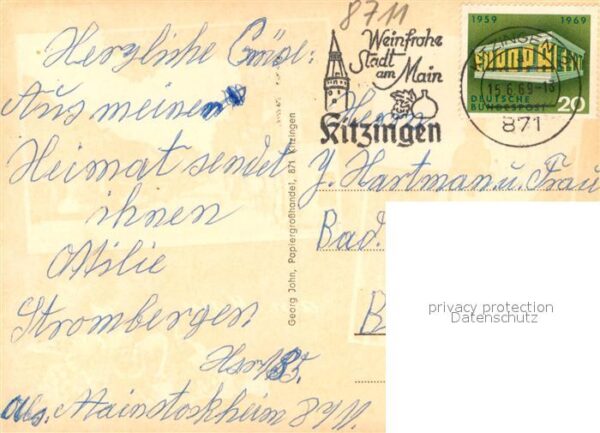 Herzliche Grüse:
Aus meinen
Heimat sendet
ihnen
Ottilie
Strombergen
Hsnr 85.
Mainstockheim 8711.
8711
Weinfrohe
Stadt
am Main
Kitzingen
1959 1969
EUROPA CEPT
DEUTSCHE
BUNDESPOST 20
15.6.69-18
871
Georg John, Papiergroßhandel, 871 Kitzingen
Herrn
J. Hartman u. Frau
Bad.
B
privacy protection
Datenschutz